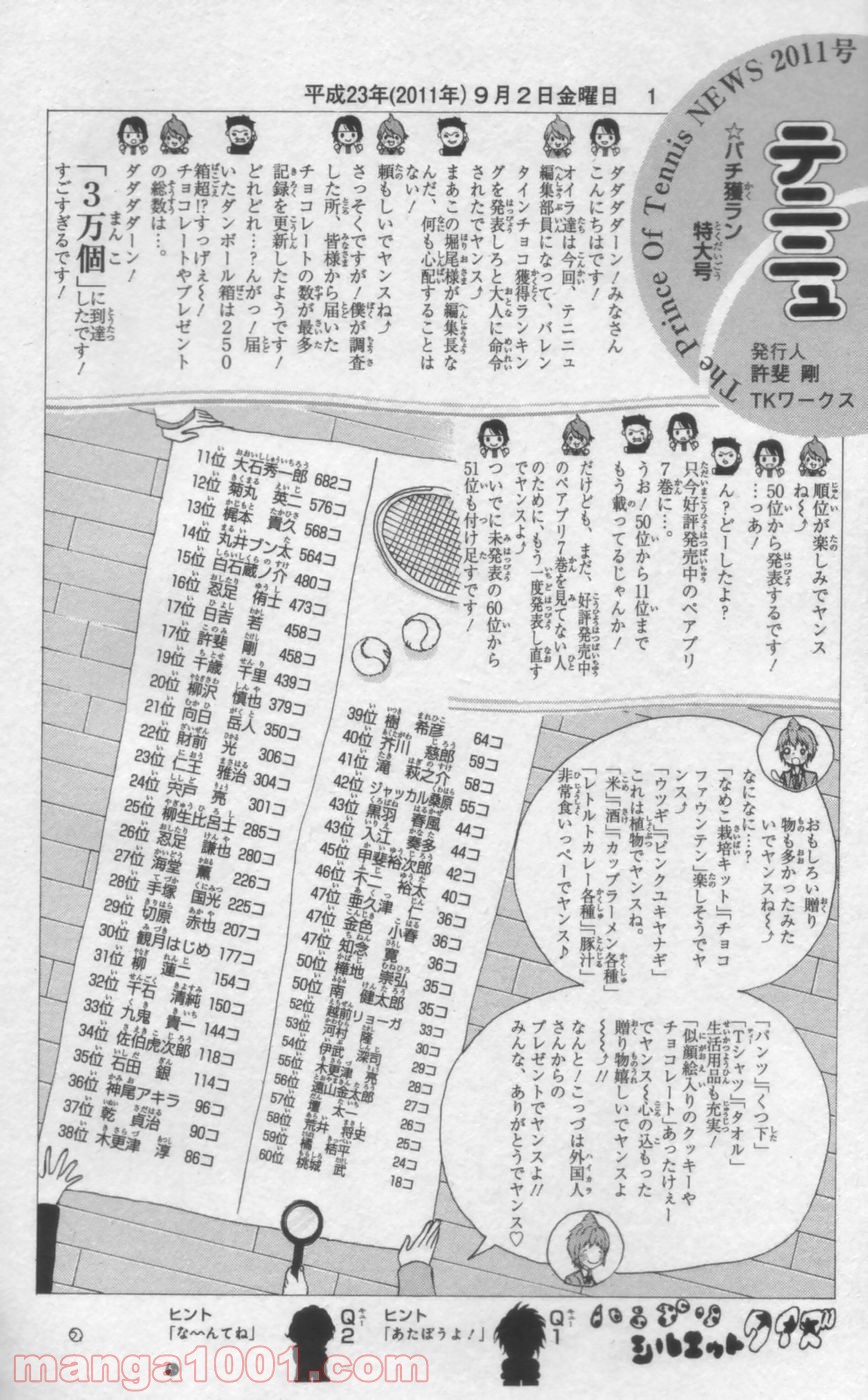 平成23年(2011年)9月2日金曜日 1
The Prince Of Tennis NEWS 2011号
テニニュ
☆バチ獲ラン
特大号
発行人
許斐 剛
TKワークス
ダダダダーン!みなさん
こんにちはです!
オイラ達は今回、テニニュ
編集部員になって、バレン
タインチョコ獲得ランキン
グを発表しろと大人に命令
されたでヤンス⤴
まあこの堀尾様が編集長な
んだ、何も心配することは
ない!
頼もしいでヤンスね⤴
さっそくですが!僕が調査
した所、皆様から届いた
チョコレートの数が最多
記録を更新したようです!
どれどれ…?んがっ!届
いたダンボール箱は250
箱超!?すっげぇ〜!
チョコレートやプレゼント
の総数は…。
ダダダダーン!
「3万個」に到達
したです!
すごすぎるです!
順位が楽しみでヤンス
ね〜⤴
50位から発表するです!
…っあ!
ん?どーしたよ?
只今好評発売中のペアプリ
7巻に…。
うお!50位から11位まで
もう載ってるじゃんか!
だけども、まだ、好評発売中
のペアプリ7巻を見てない人
のために、もう一度発表し直す
でヤンスよ⤴
ついでに未発表の60位から
51位も付け足すです!
11位 大石秀一郎 682コ
12位 菊丸 英二 576コ
13位 梶本 貴久 568コ
14位 丸井ブン太 564コ
15位 白石蔵ノ介 480コ
16位 忍足 侑士 473コ
17位 日吉 若 458コ
17位 許斐 剛 458コ
19位 千歳 千里 439コ
20位 柳沢 慎也 379コ
21位 向日 岳人 350コ
22位 財前 光 306コ
23位 仁王 雅治 304コ
24位 宍戸 亮 301コ
25位 柳生比呂士 285コ
26位 忍足 謙也 280コ
27位 海堂 薫 226コ
28位 手塚 国光 225コ
29位 切原 赤也 207コ
30位 観月はじめ 177コ
31位 柳 蓮二 154コ
32位 千石 清純 150コ
33位 九鬼 貴一 144コ
34位 佐伯虎次郎 118コ
35位 石田 銀 114コ
36位 神尾アキラ 96コ
37位 乾 貞治 90コ
38位 木更津 淳 86コ
39位 樹 希彦 64コ
40位 芥川 慈郎 59コ
41位 滝 萩之介 58コ
42位 ジャッカル桑原 55コ
43位 黒羽 春風 44コ
43位 入江 奏多 44コ
45位 甲斐 裕次郎 42コ
46位 不二 裕太 40コ
47位 亜久津 仁 36コ
47位 金色 小春 36コ
47位 知念 寛 36コ
50位 樺地 崇弘 35コ
50位 南 健太郎 35コ
52位 越前リョーガ 33コ
53位 河村 隆 30コ
54位 伊武 深司 29コ
55位 木更津 亮 28コ
55位 遠山金太郎 28コ
57位 壇 太一 27コ
58位 荒井 将史 26コ
59位 橘 桔平 25コ
60位 桃城 武 24コ
18コ
おもしろい贈り
物も多かったみた
いでヤンスね〜⤴
なになに…?
「なめこ栽培キット」「チョコ
ファウンテン」楽しそうでヤ
ンス⤴
「ウツギ」「ピンクユキヤナギ」
これは植物でヤンスね。
「米」「酒」「カップラーメン各種」
「レトルトカレー各種」「豚汁」
非常食いっぺーでヤンス♪
「パンツ」「くつ下」
「Tシャツ」「タオル」
生活用品も充実!
「似顔絵入りのクッキーや
チョコレート」あったけぇー
でヤンス〜心の込もった
贈り物嬉しいでヤンスよ
〜⤴!!
なんと!こっづは外国人
さんからの
プレゼントでヤンスよ!!
みんな、ありがとうでヤンス♡
シルエットクイズ
Q1
ヒント
「あたぼうよ!」
Q2
ヒント
「な〜んてね」
manga1001.com